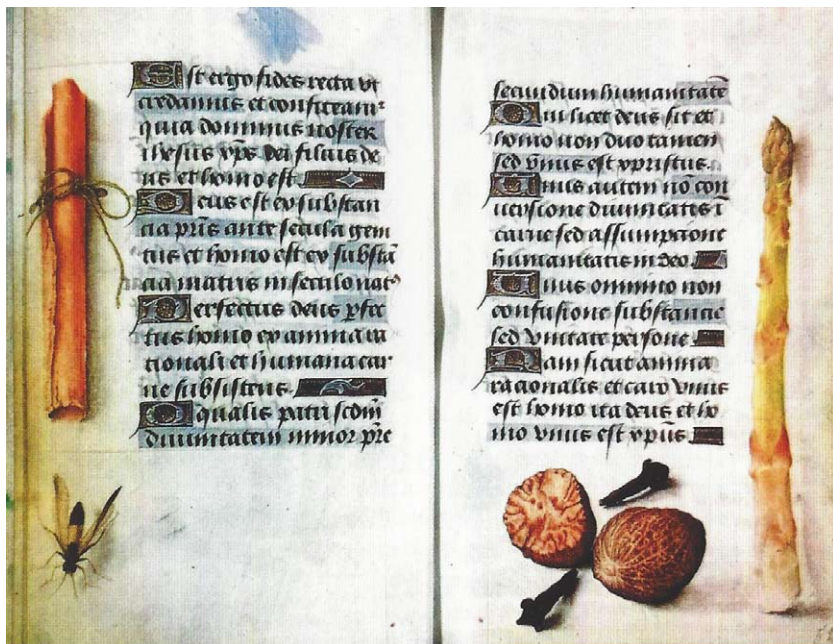 Est ergo fides recta vt
credamus et confiteam̄
quia dominus noster
ihesus xp̄s dei filius de
us et homo est
Deus est ex substan
cia pr̄is ante secula geni
tus et homo est ex substā
cia matris in seculo nat
Perfectus deus p̱fec
tus homo ex anima ra
cionali et humana car
ne subsistens
Equalis patri scdm̄
diuinitatem minor pr̄e
secundum humanitatē
Qui licet deus sit et
homo non duo tamen
sed vnus est xpristus
Unus autem nō con
uersione diuinitatis ī
carne sed assumpcione
humanitatis in deo
Unus omnino non
confusione substancie
sed vnitate persone
Nam sicut anima
racionalis et caro vnus
est homo ita deus et ho
mo vnus est xp̄us